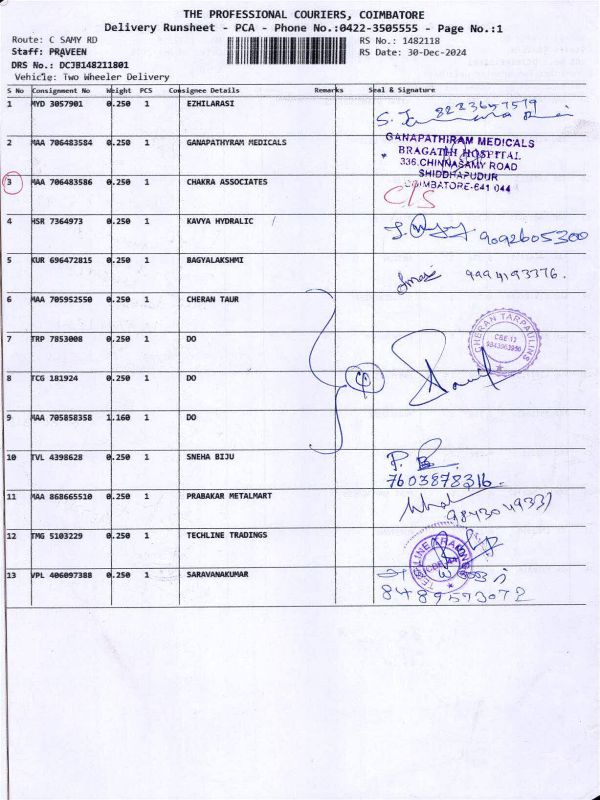 THE PROFESSIONAL COURIERS, COIMBATORE
Delivery Runsheet - PCA - Phone No.:0422-3505555 - Page No.:1
Route: C SAMY RD
RS No.: 1482118
Staff: PRAVEEN
RS Date: 30-Dec-2024
DRS No.: DCJB148211801
Vehicle: Two Wheeler Delivery
S No Consignment No Weight PCS Consignee Details Remarks Seal & Signature
1 MYD 3057901 0.250 1 EZHILARASI
2 MAA 706483584 0.250 1 GANAPATHYRAM MEDICALS
GANAPATHIRAM MEDICALS
BRAGATHI HOSPITAL
336,CHINNASAMY ROAD
SHIDDHAPUDUR
COIMBATORE-641 044
3 MAA 706483586 0.250 1 CHAKRA ASSOCIATES C/S
4 HSR 7364973 0.250 1 KAVYA HYDRALIC 9092605300
5 KUR 696472815 0.250 1 BAGYALAKSHMI 9994193376.
6 MAA 705952550 0.250 1 CHERAN TAUR
CHERAN TARPAULINS
CBE-12
7 TRP 7853008 0.250 1 DO
8 TCG 181924 0.250 1 DO
9 MAA 705858358 1.160 1 DO
10 TVL 4398628 0.250 1 SNEHA BIJU
7603878316.
11 MAA 868665510 0.250 1 PRABAKAR METALMART
12 TMG 5103229 0.250 1 TECHLINE TRADINGS
13 VPL 406097388 0.250 1 SARAVANAKUMAR
8489573072